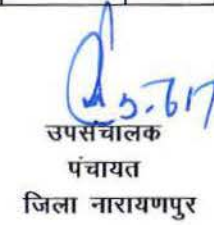 उपसंचालक
पंचायत
जिला नारायणपुर